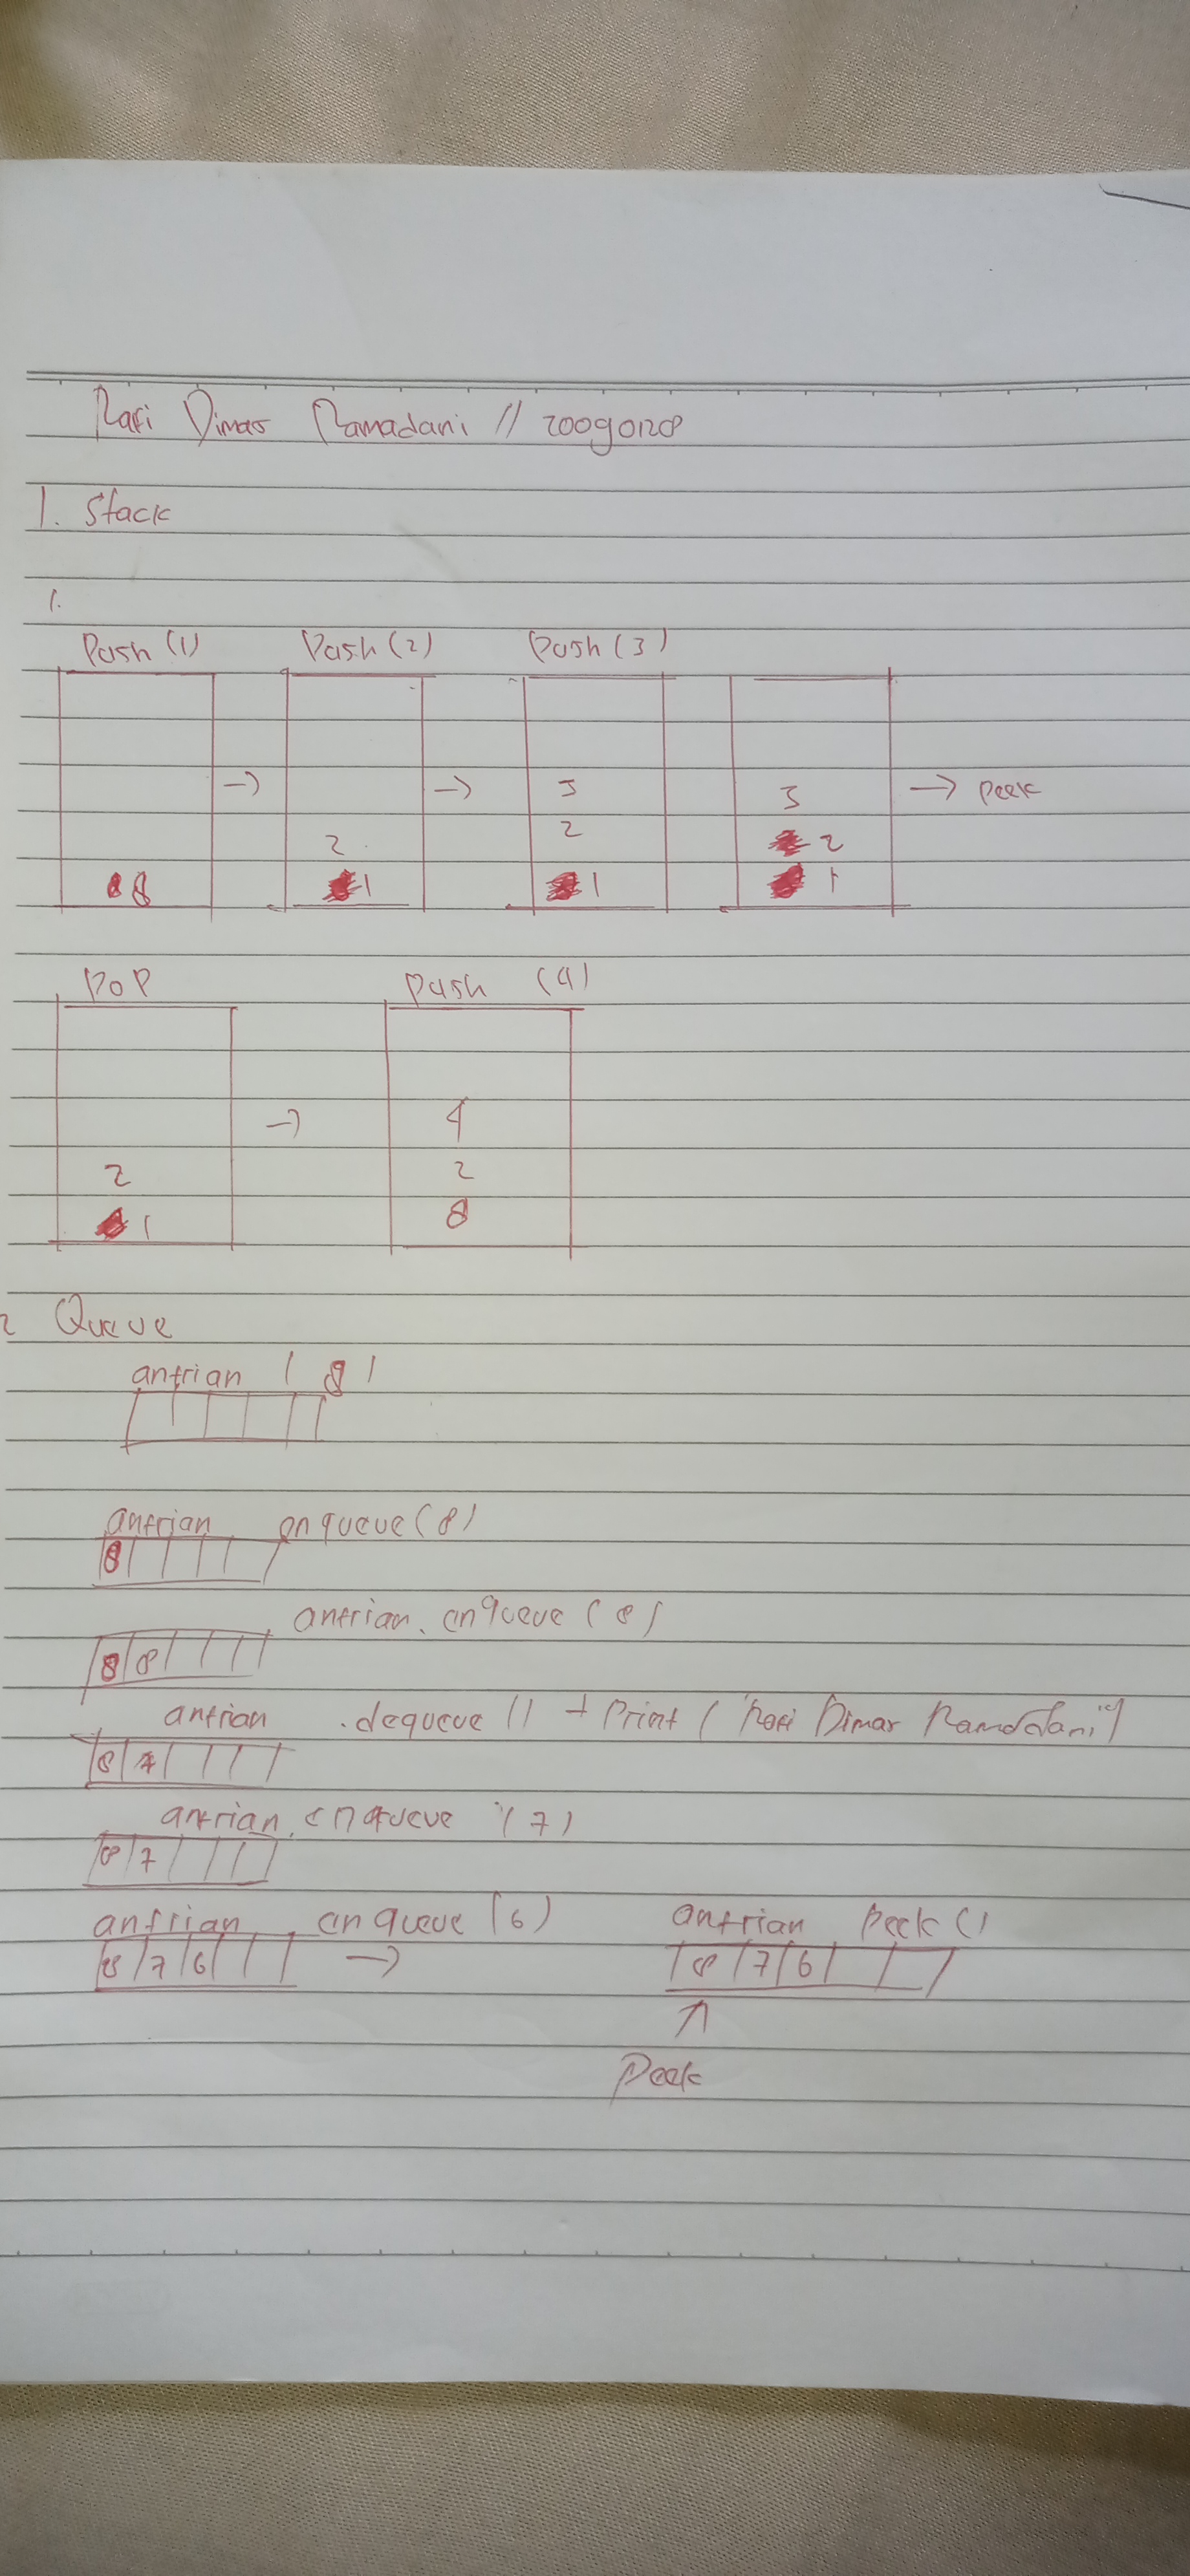 Rafi Dimas Ramadani // 20090128
1. Stack
1.
Push (1) Push (2) Push (3)
-> -> 3 3 -> peek
2 2 2
8 1 1 1
POP Push (4)
-> 4
2 2
1 8
2 Queue
antrian ( 8 )
antrian enqueue (8)
8
antrian. enqueue (8)
8 8
antrian .dequeue () + Print ( "Rafi Dimar Ramadani")
8 7
antrian. enqueue (7)
8 7
antrian . enqueue (6) antrian Peek ()
8 7 6 -> 8 7 6
Peek